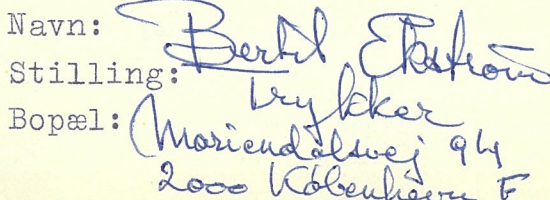 Navn: Bertil Ekström
Stilling: Trykker
Bopæl: Mariendalsvej 94
2000 København F